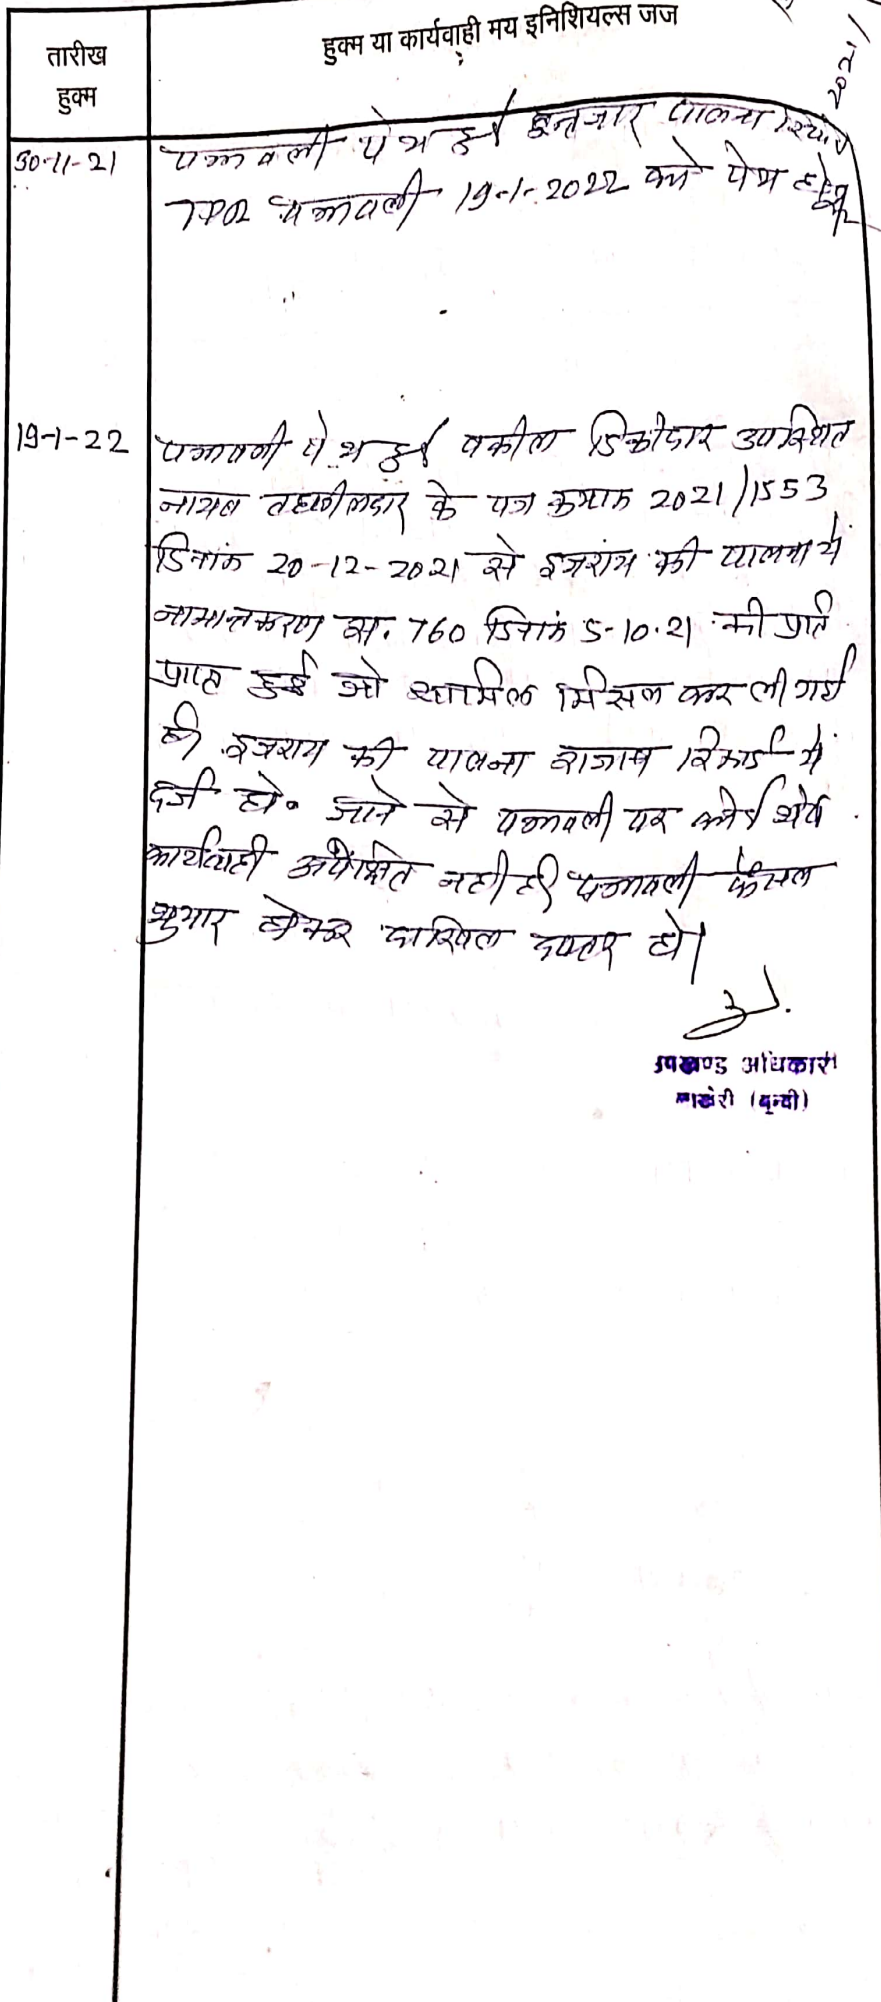 तारीख
हुक्म
हुक्म या कार्यवाही मय इनिशियल्स जज
30-11-21
पत्रावली पेश हुई इन्तजार पालना रिपोर्ट
TDR पत्रावली 19-1-2022 को पेश हो
19-1-22
पत्रावली पेश हुई वकील डिक्रीदार उपस्थित
नायब तहसीलदार के पत्र क्रमांक 2021/1553
दिनांक 20-12-2021 से इजराय की पालना में
नामान्तकरण स. 760 दिनांक 5-10-21 की प्रति
प्राप्त हुई जो शामिल मिसल कर ली गई
है इजराय की पालना राजस्व रिकार्ड में
दर्ज हो जाने से पत्रावली पर कोई शेष
कार्यवाही अपेक्षित नही है पत्रावली फैसल
शुमार होकर दाखिल दफ्तर हो।
उपखण्ड अधिकारी
लाखेरी (बून्दी)